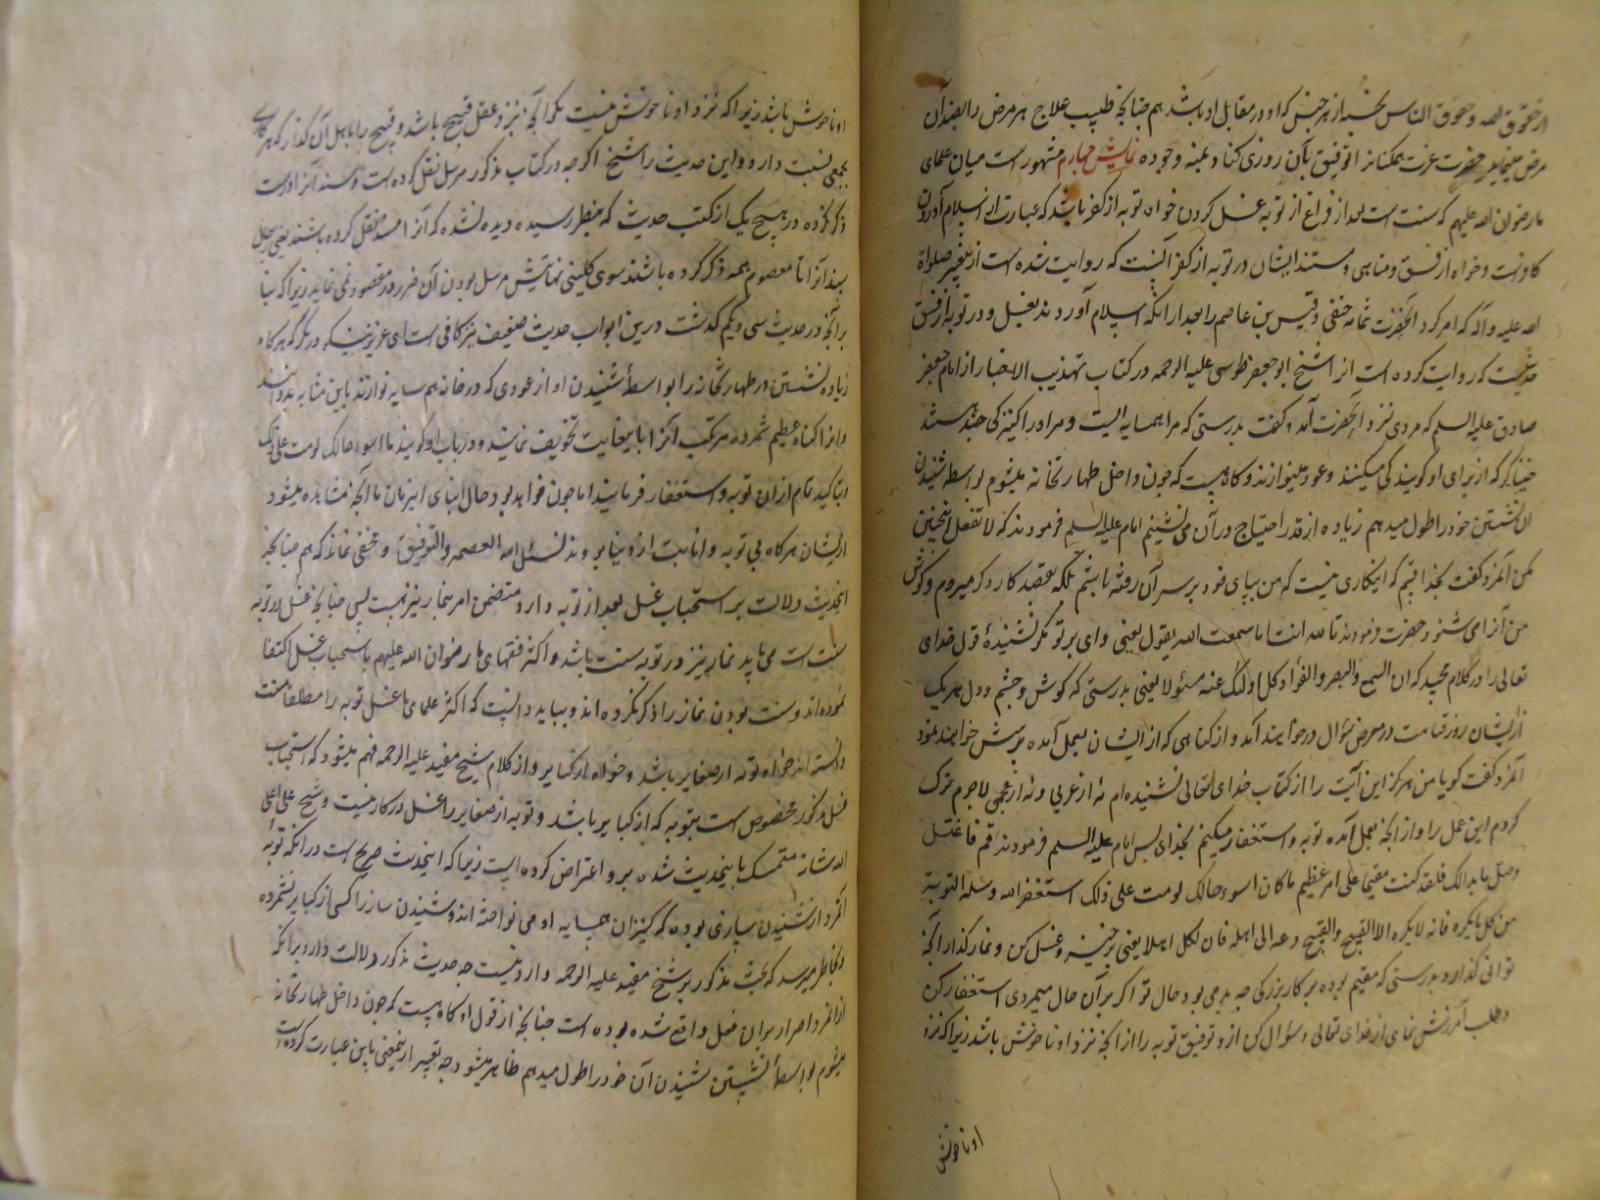 از حقوق الله و حقوق الناس بخشد از هر جنس که او در مقابل او باشد هم چنانچه طبیب علاج هر مرض را بضد آن
مرض مینماید حضرت عزت همکنانرا توفیق بآن روزی کناد بمنه وجوده نمایش چهارم مشهور است میان علمای
ما رضوان الله علیهم که سنت است بعد از فراغ از توبه غسل کردن خواه توبه از کفر باشد که عبارت از اسلام آوردن
کافر است و خواه از فسق و مناهی و مستند ایشان در توبه از کفر آنست که روایت شده است از پیغمبر صلواة
الله علیه و اله که امر کرد آنحضرت ثمامه حنفی و قیس بن عاصم را بعد از آنکه اسلام آوردند بغسل و در توبه از فسق
حدیثیست که روایت کرده است انرا شیخ ابو جعفر طوسی علیه الرحمه در کتاب تهذیب الاخبار از امام جعفر
صادق علیه السلم که مردی نزد آنحضرت آمد و گفت بدرستی که مرا همسایه ایست و مر او را کنیزکی چند هستند
که از برای او کویندکی میکنند و عود مینوازند و کاه هست که چون داخل طهارتخانه میشوم بواسطه شنیدن
آن نشستن خود را طول میدهم زیاده از قدر احتیاج در آن می نشینم امام علیه السلم فرمودند که لا تفعل اینچنین
مکن آنمرد گفت بخدا قسم که اینکاری نیست که من بپای خود بر سر آن رفته باشم بلکه بقصد کار دکر میروم و گوش
من آنرا می شنود حضرت فرمودند تالله انت اما سمعت الله یقول یعنی وای بر تو مکر نشنیدهٔ قول خدای
تعالی را در کلام مجید که ان السمع والبصر والفؤاد کل اولئک کان عنه مسئولا یعنی بدرستی که کوش و چشم و دل هر یک
از ایشان روز قیامت در معرض سؤال در خواهند آمد و از کناهی که از ایشان بعمل آمده پرسش خواهند نمود
آنمرد گفت کویا من هرکز این آیت را از کتاب خدای تعالی نشنیده ام نه از عربی و نه از عجمی لاجرم ترک
کردم این عمل را و از آنچه بعمل آمده توبه و استغفار میکنم بخدای پس امام علیه السلم فرمودند قم فاغتسل
وصل ما بدا لک فلقد کنت مقیما علی امر عظیم ما کان اسوء حالک لو مت علی ذلک استغفر الله وسله التوبة
من کل ما یکره فانه لا یکره الا القبیح والقبیح دعه الی اهله فان لکل اهلا یعنی برخیز و غسل کن و نماز گذار آنچه
توانی گذارد بدرستی که مقیم بوده بر کار بزرکی چه بد می بود حال تو اکر بر آن حال میمردی استغفار کن
و طلب آمرزش نمای از خدای تعالی و سؤال کن از و توفیق توبه را از آنچه نزد او ناخوش باشد زیرا که نزد
او ناخوش
او ناخوش باشد زیرا که نزد او ناخوش نیست مکر آنچه نزد عقل قبیح باشد و قبیح را باهل آن گذار که هر کاری
بجمعی نسبت دارد و این حدیث را شیخ اکرچه در کتاب مذکور مرسل نقل کرده است و سند آنرا
ذکر نکرده در هیچ یک از کتب حدیث که بنظر رسیده دیده نشده که آنرا مسند نقل کرده باشند یعنی رجال
سند آنرا تا معصوم همه ذکر کرده باشند سوی کلینی نهایتش مرسل بودن آن ضرر در مقصود نمی نماید زیرا که بنا
بر آنچه در حدیث سی و یکم گذشت درین ابواب حدیث ضعیف نیز کافی است ای عزیز نیک در نگر که هرکاه
زیاده نشستن در طهارتخانه را بواسطهٔ شنیدن آواز عودی که در خانه همسایه نوازند باین مثابه بد دانند
و آنرا کناه عظیم شمرده مرتکب آنرا باینغایت تخویف نمایند و در باب او کویند ما اسوء حالک لو مت علی ذلک
و بتاکید تمام از آن توبه و استغفار فرمایند آیا چون خواهد بود حال ابنای این زمان با آنچه مشاهده میشود
از ایشان هرکاه بی توبه و انابت از دنیا بروند نسئل الله العصمه والتوفیق و مخفی نماند که هم چنانچه
اینحدیث دلالت بر استحباب غسل بعد از توبه دارد متضمن امر بنماز نیز هست پس چنانچه غسل در توبه
سنت است می باید نماز نیز در توبه سنت باشد و اکثر فقهای ما رضوان الله علیهم باستحباب غسل اکتفا
نموده اند و سنت بودن نماز را ذکر نکرده اند و بباید دانست که اکثر علمای ما غسل توبه را مطلقا سنت
دانسته اند خواه توبه از صغایر باشد و خواه از کبایر و از کلام شیخ مفید علیه الرحمه فهم میشود که استحباب
غسل مذکور مخصوص است بتوبه که از کبایر باشد و توبه از صغایر را غسل در کار نیست و شیخ علی اعلی
الله شانه متمسک باینحدیث شده برو اعتراض کرده است زیرا که اینحدیث صریح است در آنکه توبهٔ
آنمرد از شنیدن سازی بوده که کنیزان همسایه او می نواخته اند و شنیدن ساز را کسی از کبایر نشمرده
و بخاطر میرسد که بحث مذکور بر شیخ مفید علیه الرحمه وارد نیست چه حدیث مذکور دلالت دارد بر آنکه
از آنمرد اصرار بر آن فعل واقع شده بوده است چنانچه از قول او کاه هست که چون داخل طهارتخانه
میشوم بواسطهٔ نشستن شنیدن آن خود را طول میدهم ظاهر میشود چه تعبیر از معنی باین عبارت کرده است